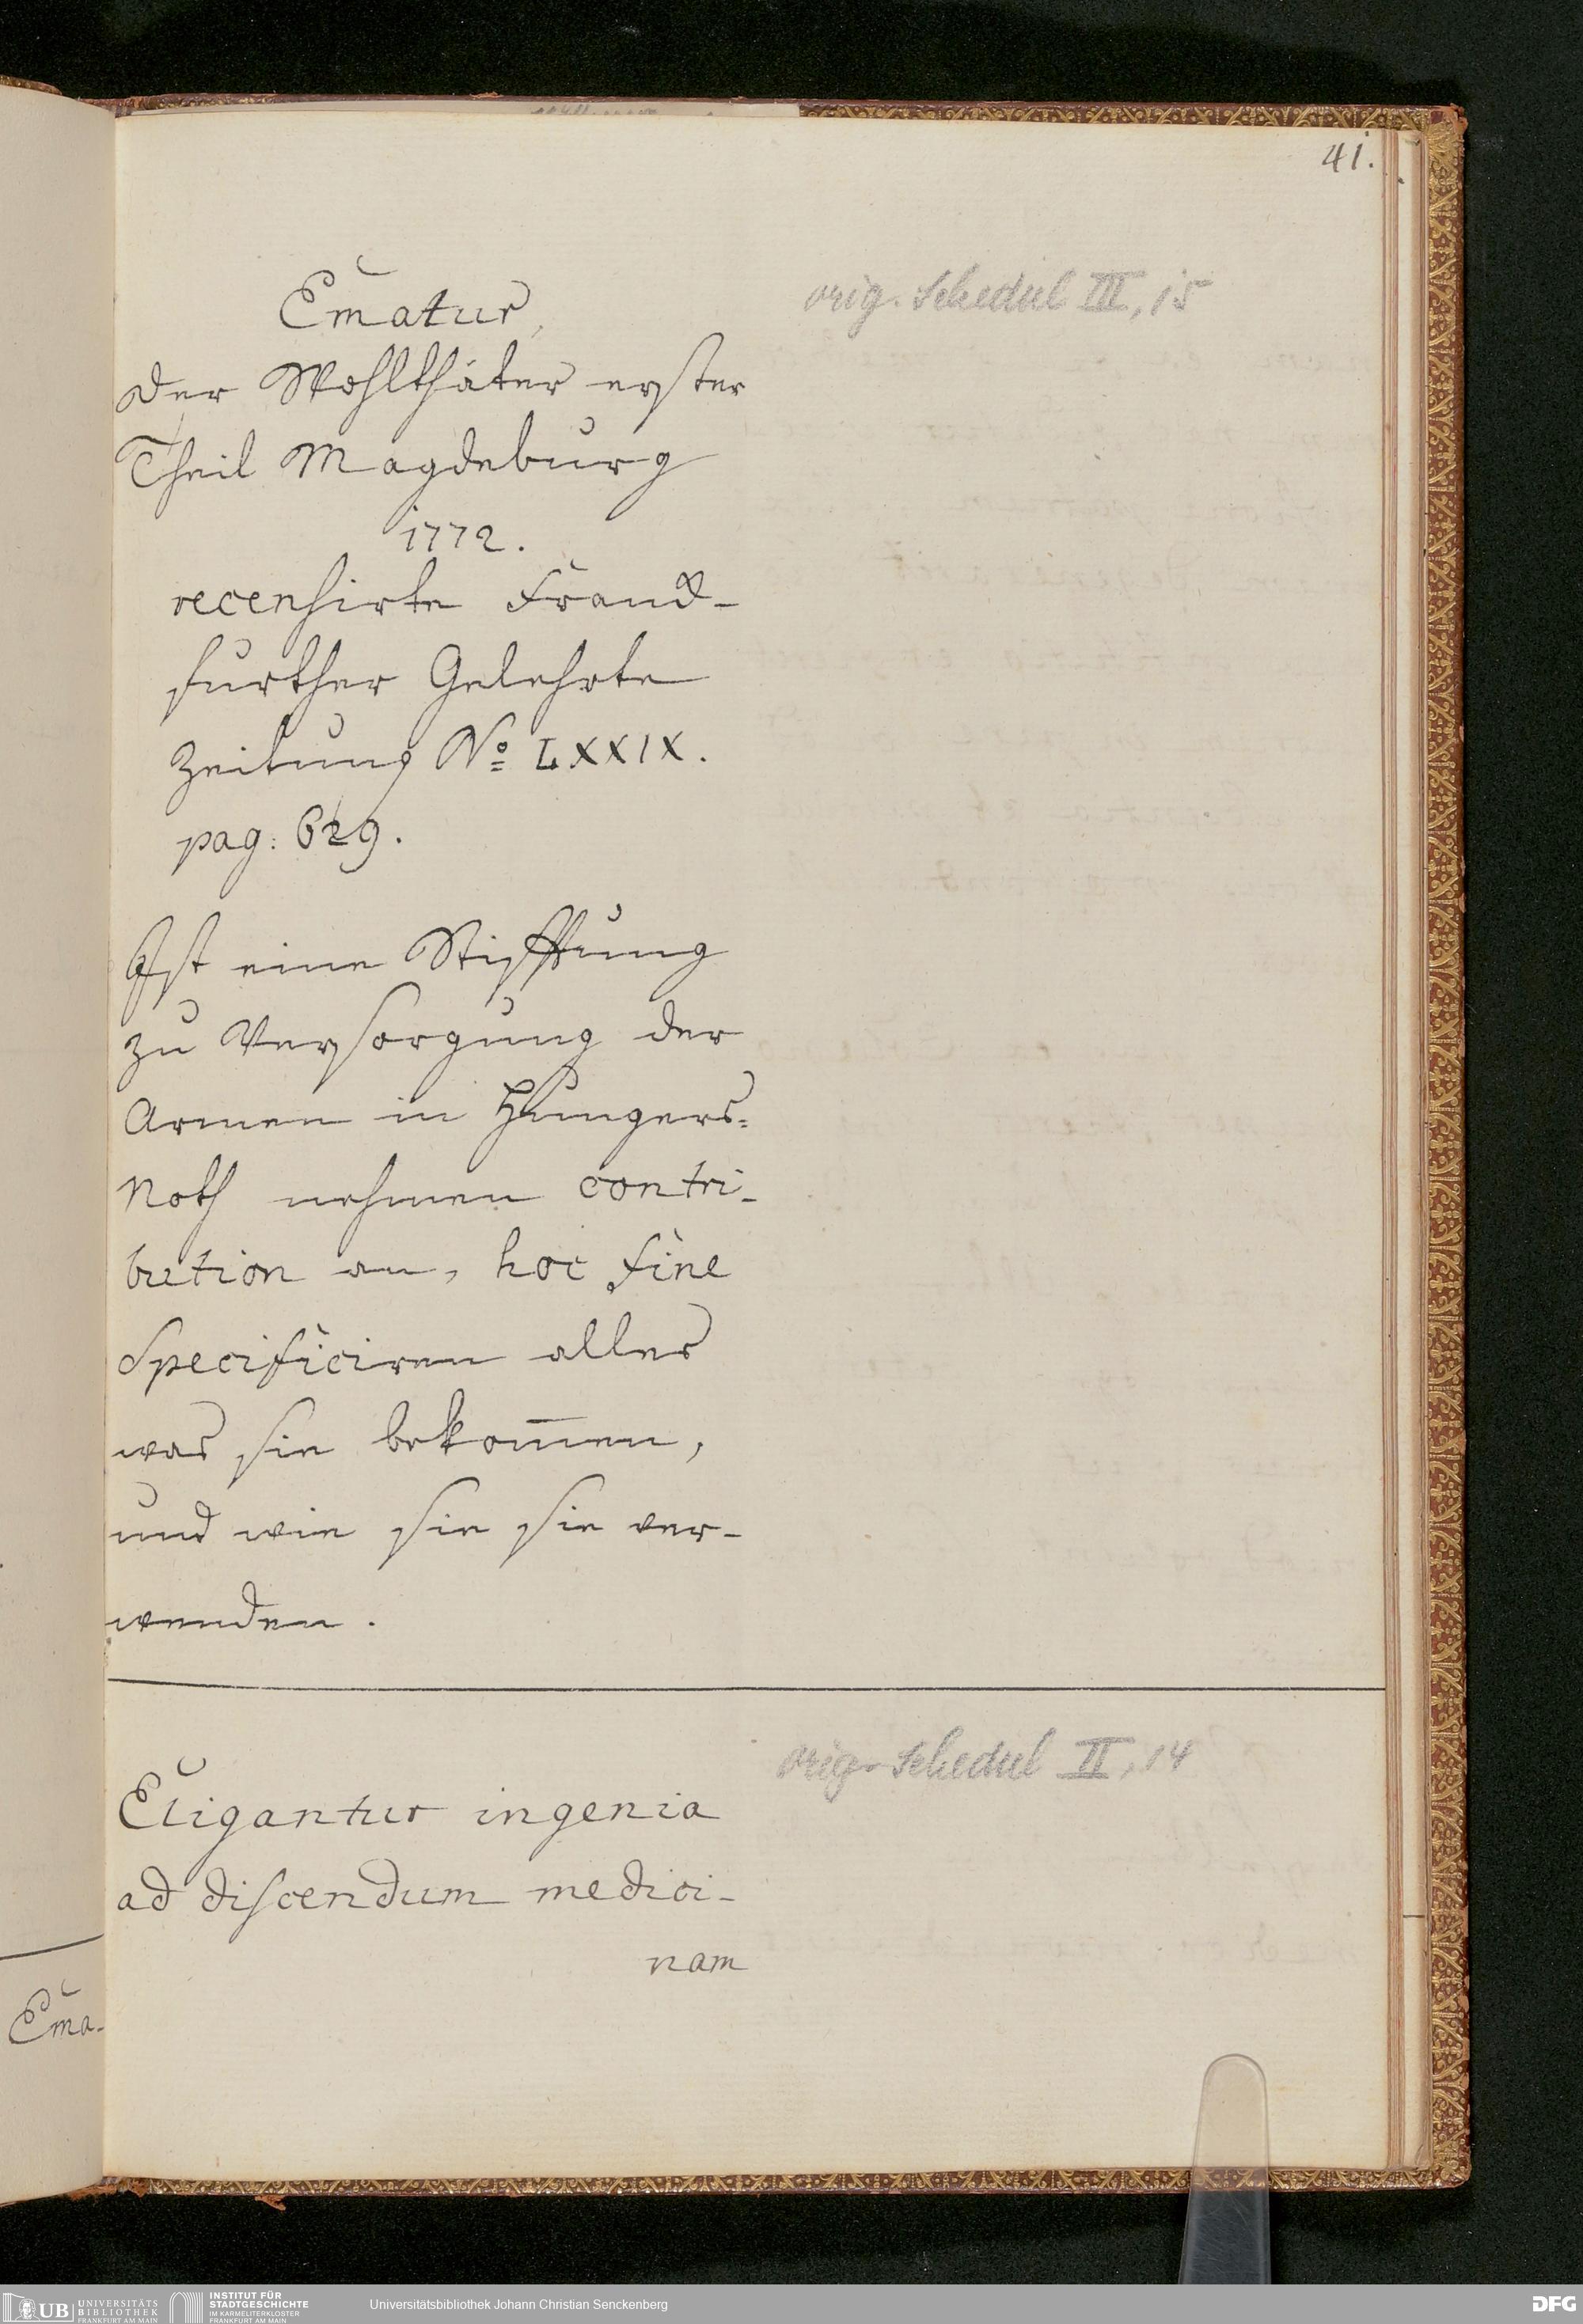 41.
Ematur,
orig. Schedul III, 15
der Wohlthäter erster
Theil Magdeburg
1772.
recensirte Franck-
further Gelehrte
Zeitung No LXXIX.
pag: 629.
Ist eine Stifftung
zu Versorgung der
Armen in Hungers=
Noth nehmen contri-
bution an, hoc fine
Specificiren alles
was sie bekom̄en,
und wie sie sie ver-
wenden.
orig. Schedul II, 14
Eligantur ingenia
ad discendum medici-
nam
Ema-
UB UNIVERSITÄTS
BIBLIOTHEK
FRANKFURT AM MAIN
INSTITUT FÜR
STADTGESCHICHTE
IM KARMELITERKLOSTER
FRANKFURT AM MAIN
Universitätsbibliothek Johann Christian Senckenberg
DFG